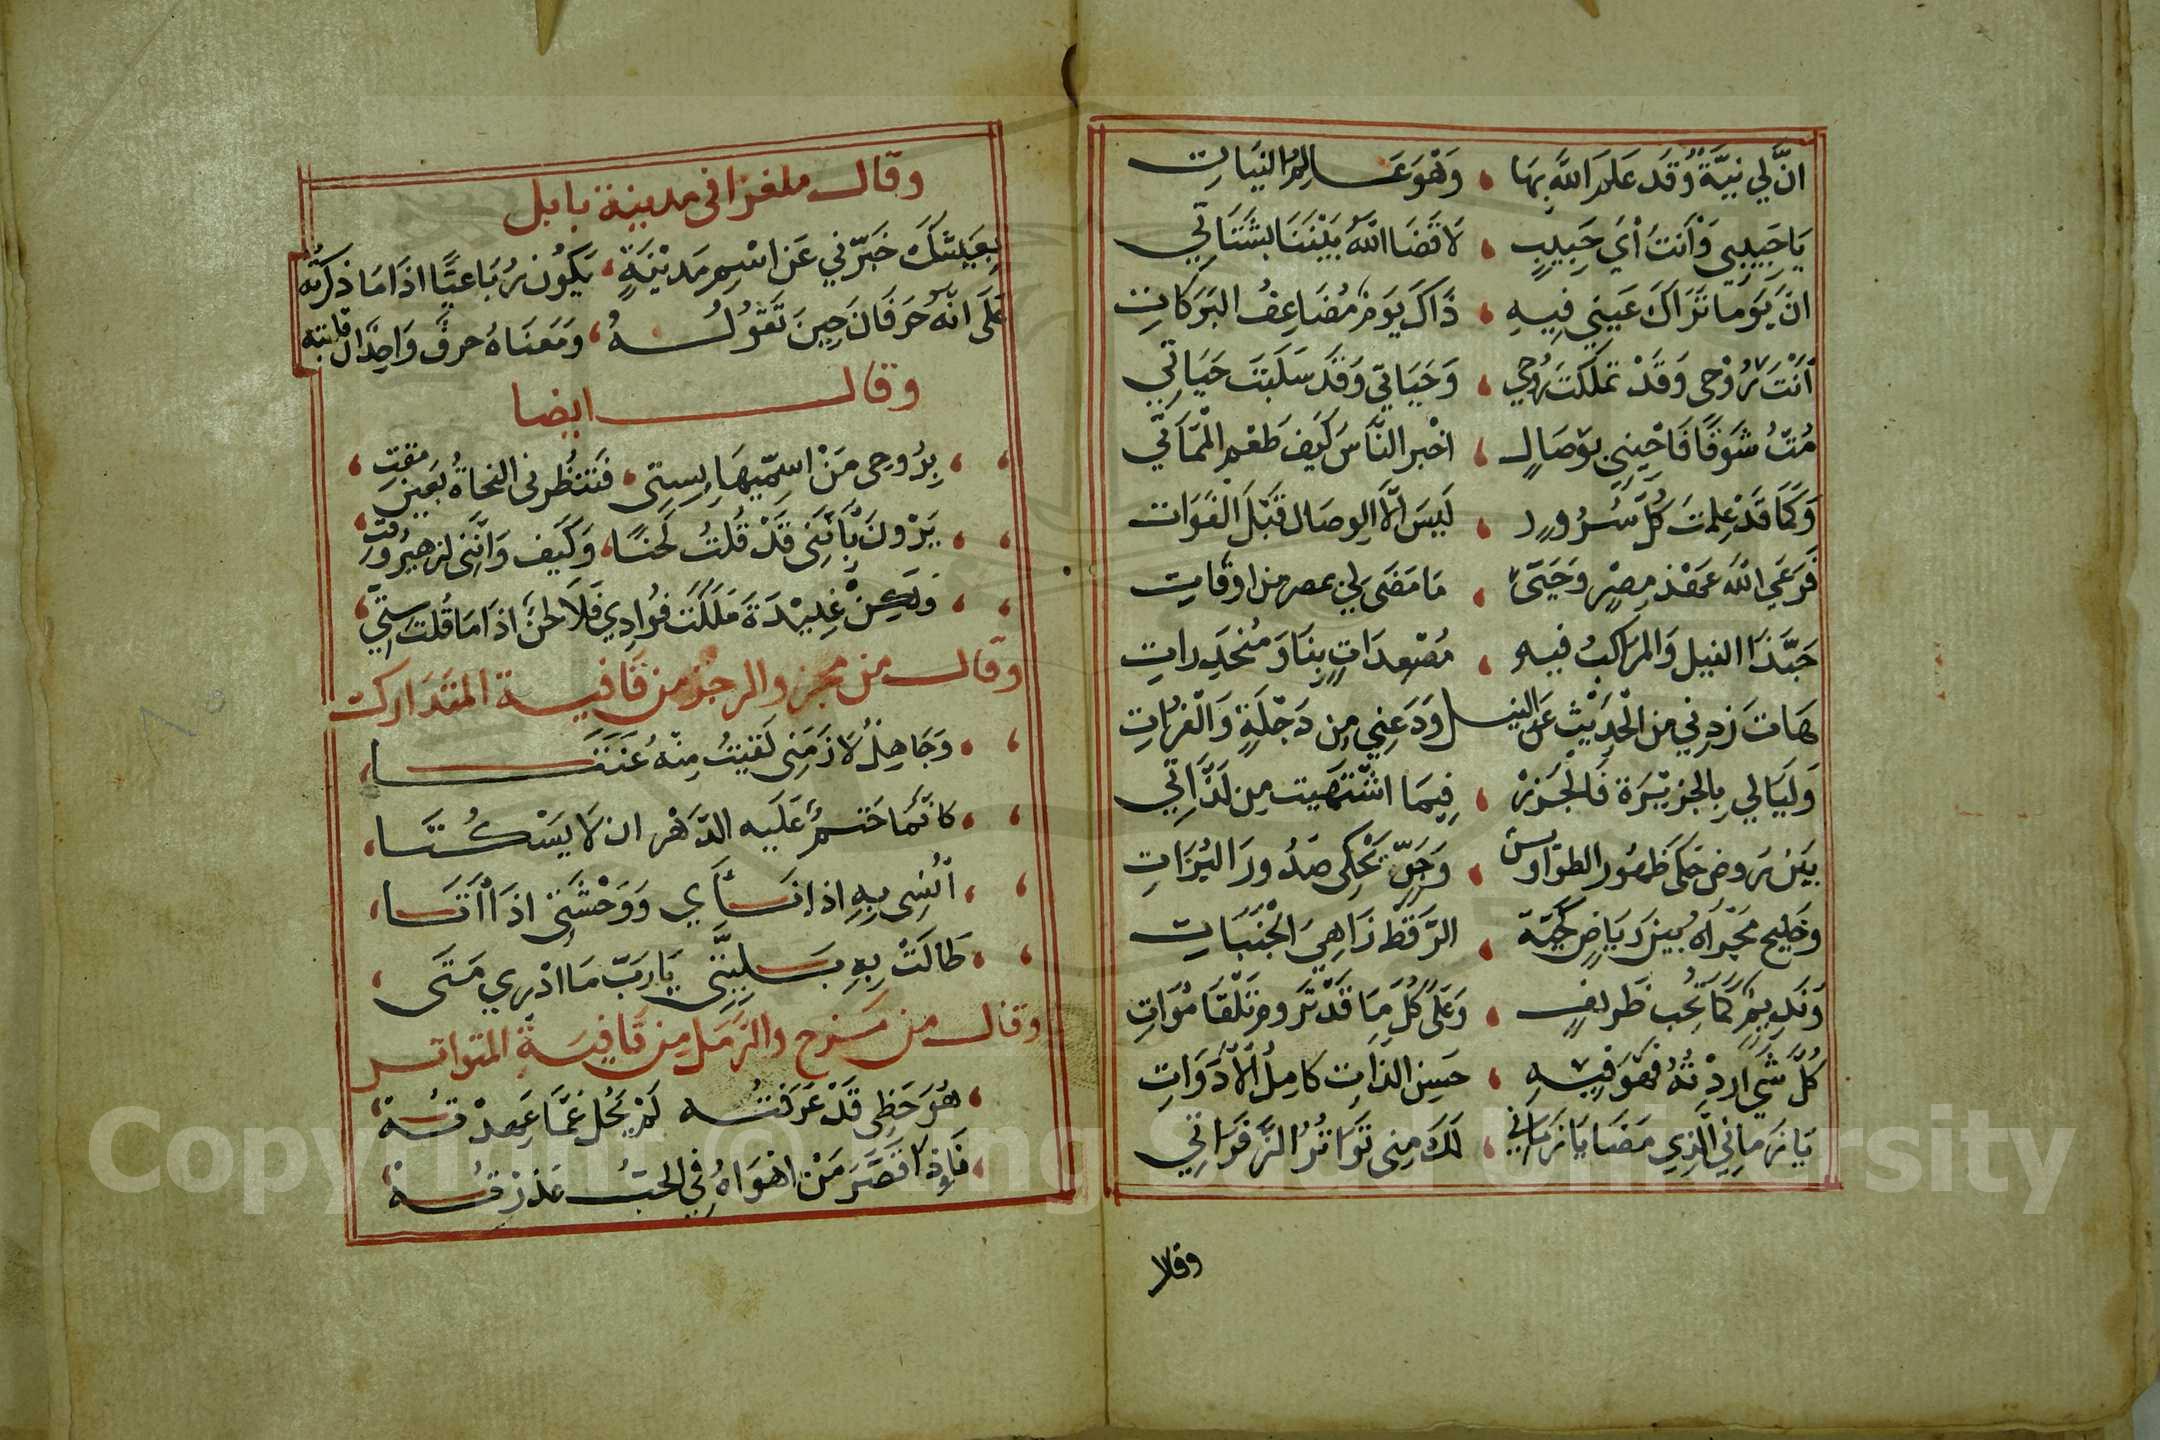 انَّ لي نيَّةً وَقَد عَلمَ اللَّه بِهَا ، وَهْوَ عَالِمُ النيَاتِ
يَا حَبِيبي وَأنتَ أيُ حَبِيبٍ ، لَا قَضَا اللَّهُ بَيْننَا بشَتَاتي
انَّ يَوما تَرَاكَ عَيني فِيهِ ، ذَاكَ يَومٌ مُضَاعفُ البَركَاتِ
أنتَ رُوْحى وَقَدْ تملكتَ رُوحي ، وَحَيَاتي وَقَد سَلَبتَ حَيَاتي
مُتُّ شَوقًا فَأحْيِني بوِصَالٍ ، اخْبر النَّاسَ كَيفَ طَعْم الْمَمَاتي
وَكَمَا قَدْ عَلِمتَ كُلّ سُرُورٍ ، لَيسَ الَّا الوِصَال قَبْلَ الفَوَات
فَرَعَى اللَّه عَهْدَ مِصْرٍ وَحَيَّى ، مَا مَضَى لي بمصر من اوقَاتِ
حَبَّذَا النيل وَالمرَاكبُ فيهِ ، مُصْعِدَاتٍ بِنَا وَمُنحَدِراتِ
هَاتَ زِدني من الْحَدِيْث عَن النيل وَدَعني مِن دَجْلَةٍ وَالْفرَاتِ
وَلَيَالي بِالجزيْرَة فَالْجَزَيْرْ ، فِيمَا اشْتَهَيت مِن لَذَّاتي
بَيْن رَوض حَكى ظهُور الطوَاويس ، وَجَوّ يَحْكِى صَدُورَ البُزَاتِ
وَخَليج مَجْرَاهُ بَينَ رِيَاضٍ كَحيّة ، الرَّقْط زَاهِيَ الْجنَبَاتِ
وَنَدِيمٍ كَمَا تُحِب ظَريفٍ ، وَعَلَى كُلّ مَا قَدْ تَرومُ تَلْقَا مُوَاتِ
كُلّ شَي اردْتهُ فَهْوَ فِيْهِ ، حَسن الذَاتِ كامِلُ الأدَوَاتِ
يَا زمَاني الَّذِي مَضَا يَا زمَاني ، لَكَ مِنى تَوَاتُرُ الزَّفَرَاتي
وقال
وقال ملغزا فى مدينة بابل
بِعَيشكَ خَبّرْني عَن اسْمِ مَدِيْنَةٍ ، يَكُون رُبَاعيًّا اذَا مَا ذكَرتَه
عَلَى أنَّهُ حَرفَانَ حِينَ تَقُولُهُ ، وَمَعْنَاهُ حرفٌ وَاحِدٌ ان قَلَبته
وقال ايضا
، بِرُوحِى مَنْ اسِمّيهَا بِسِتى ، فَتَنظُر نى النحَاةُ بعَين مقتِ ،
، يَرَوْنَ بأنَّني قَدْ قُلتُ لَحنًا ، وَكَيف وَانَّنى لزهيرُ وَقتِ ،
، وَلَكِنْ غَادَةٌ مَلَكَتْ فُوَادِي فَلَا لَحْنٌ اذَا مَا قُلت ستّي ،
وقال من مجزو الرجز من قَافيـة المتَدَارك
، وَجَاهِلٌ لَازَمَنِى لَقيتُ مِنْهُ عَنَتَا ،
، كَانَّمَا حَتمٌ عَلَيه الدَّهْر ان لَا يَسْكُتَا ،
، اُنسِى بِهِ اذ انَأي وَوَحْشَتي اذَا اَتَا ،
، طَالَتْ بِهِ بَلِيَّتى يَارَبّ مَا ادْرِي مَتَى ،
وقال من مسزح والزَّمَل مِن قَافِيَةِ المتواتر
، هُوَ حَظِى قَدْ عَرَفتُه لَمْ يَحُل عَمَّا عَهِدْتُهْ ،
، فَاِذَا قَصَّرَ مَنْ اهْوَاهُ فِي الحبّ عَذَرْتُهْ